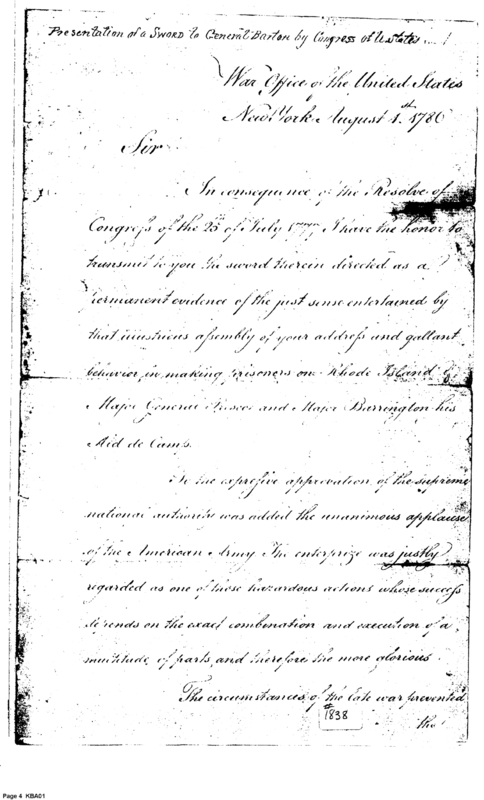 Presentation of a Sword to General Barton by Congress of U States
War Office of the United States
New York August 1.st 1786
Sir
In consequence of the Resolve of
Congress of the 25th of July 1777, I have the honor to
transmit to you the sword therein directed as a
permanent evidence of the just sense entertained by
that illustrious assembly of your address and gallant
behavior, in making prisoners on Rhode Island
Major General Prescot and Major Barrington his
Aid de Camp.
To the expressive approbation of the supreme
national authority was added the unanimous applause
of the American Army The enterprize was justly
regarded as one of those hazardous actions whose success
depends on the exact combination and execution of a
multitude of parts, and therefore the more glorious.
The circumstances of the late war prevented
the
# 1838
Page 4 KBA01